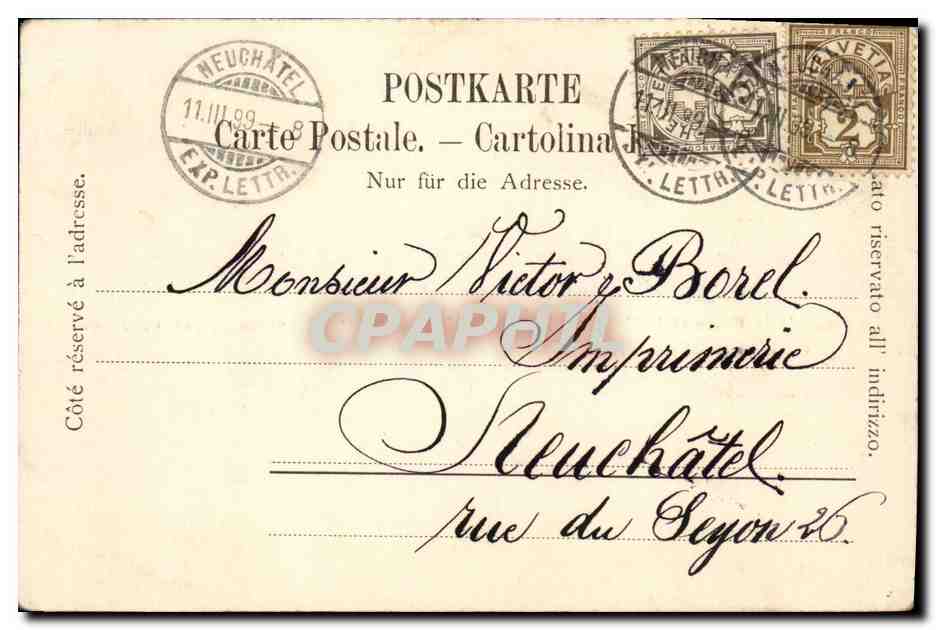 NEUCHÂTEL
11.III.99.-8
EXP. LETTR.
POSTKARTE
Carte Postale. — Cartolina
Nur für die Adresse.
Côté réservé à l'adresse.
FRANCO
HELVETIA
2
LETTR.
LETTR.
riservato all' indirizzo.
Monsieur Victor Borel.
CPAPHIL
Imprimerie
Neuchâtel.
rue du Seyon 26.